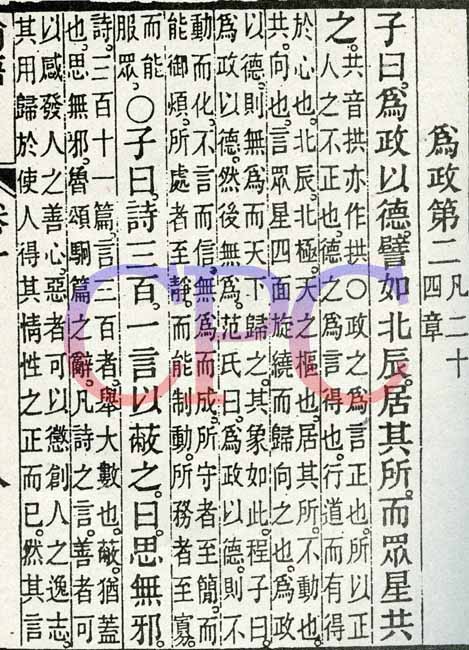 爲政第二
凡二十
四章
子曰。爲政以德。譬如北辰。居其所。而眾星共
之。
共音拱亦作拱○政之爲言正也。所以正
人之不正也。德之爲言得也。行道而有得
於心也。北辰。北極。天之樞也。居其所。不動也。
共。向也。言眾星四面旋繞而歸向之也。爲政
以德。則無爲而天下歸之。其象如此。程子曰。
爲政以德。然後無爲。范氏曰。爲政以德。則不
動而化。不言而信。無爲而成。所守者至簡。而
能御煩。所處者至靜。而能制動。所務者至寡。
而能
服眾。
○子曰。詩三百。一言以蔽之。曰。思無邪。
詩。三百十一篇。言三百者。舉大數也。蔽。猶蓋
也。思無邪。魯頌駉篇之辭。凡詩之言。善者可
以感發人之善心。惡者可以懲創人之逸志。
其用歸於使人得其情性之正而已。然其言
CPC